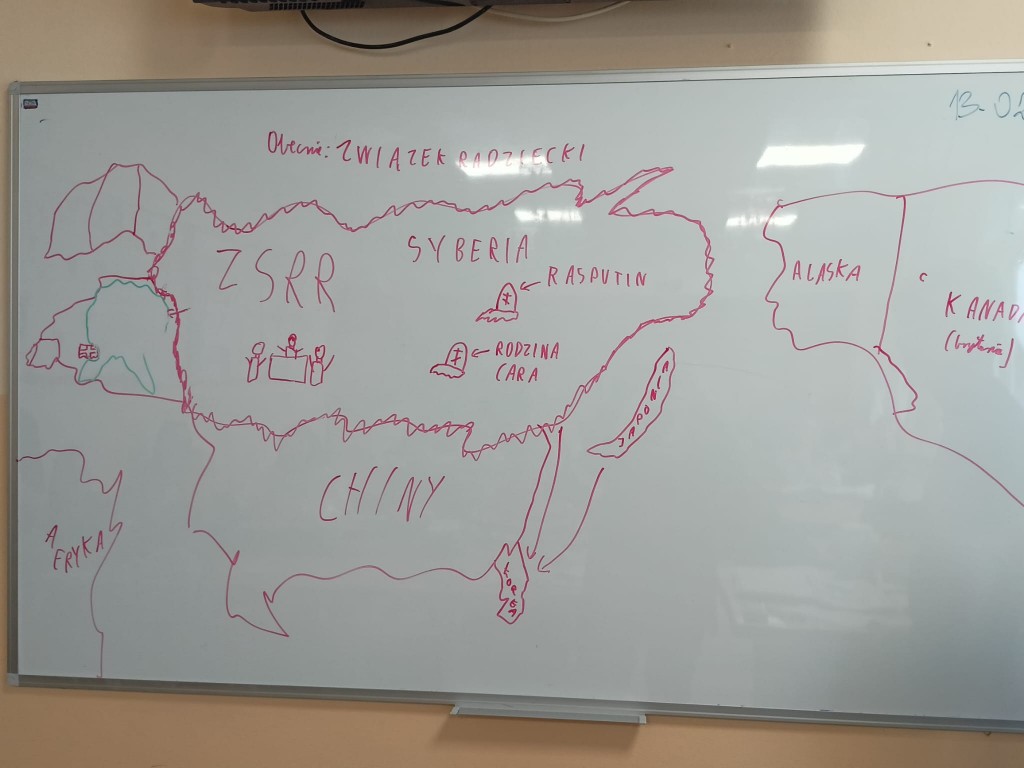 13.02
Obecnie: ZWIĄZEK RADZIECKI
ZSRR
SYBERIA
RASPUTIN
RODZINA
CARA
JAPONIA
ALASKA
KANADA
CHINY
KOREA
AFRYKA